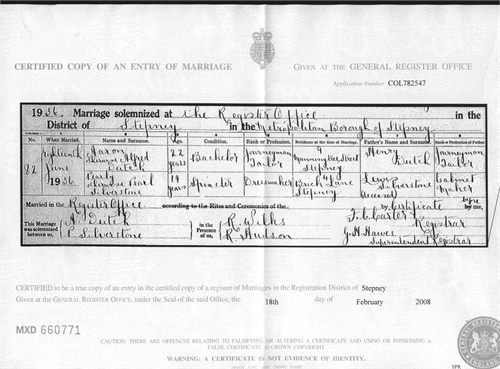 CERTIFIED COPY OF AN ENTRY OF MARRIAGE
GIVEN AT THE GENERAL REGISTER OFFICE
Application Number COL782547
1936. Marriage solemnized at the Register Office in the
District of Stepney in the Metropolitan Borough of Stepney
No. When Married. Name and Surname. Age. Condition. Rank or Profession. Residence at the time of Marriage. Father's Name and Surname. Rank or Profession of Father
82 Eighteenth June 1936
Aaron Alfred Dutch 22 years Bachelor Journeyman Tailor Street Stepney Henry Dutch Journeyman Tailor
Pearl Silverstone 19 years Spinster Dressmaker Brick Lane Stepney Lewis Silverstone deceased Cabinet Maker
Married in the Register Office according to the Rites and Ceremonies of the by Certificate before by me,
This Marriage was solemnized between us,
A. Dutch
P. Silverstone
in the Presence of us,
R. Wilks
R. Hudson
Registrar
G. H. Hawes
Superintendent Registrar
CERTIFIED to be a true copy of an entry in the certified copy of a register of Marriages in the Registration District of Stepney
Given at the GENERAL REGISTER OFFICE, under the Seal of the said Office, the 18th day of February 2008
MXD 660771
CAUTION: THERE ARE OFFENCES RELATING TO FALSIFYING OR ALTERING A CERTIFICATE AND USING OR POSSESSING A
FALSE CERTIFICATE © CROWN COPYRIGHT
WARNING: A CERTIFICATE IS NOT EVIDENCE OF IDENTITY.
SPR